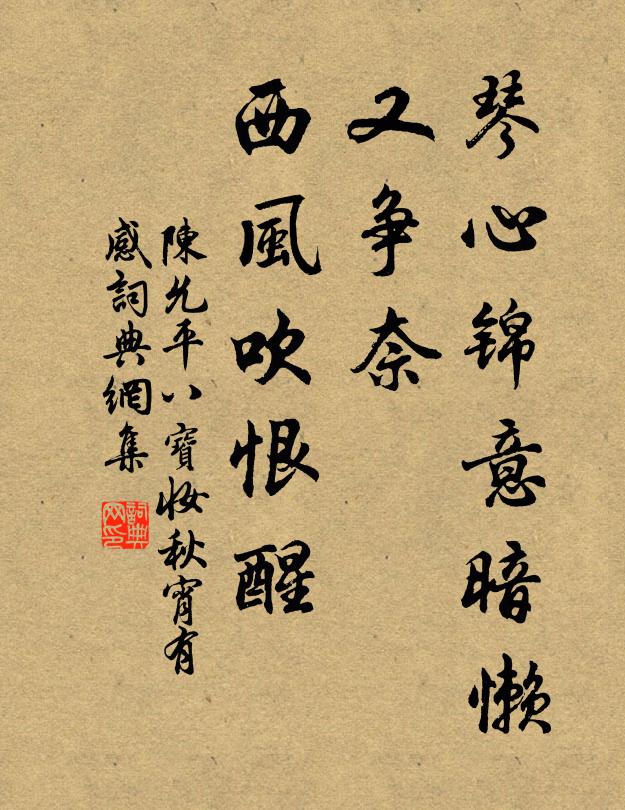 琴心锦意暗懒
又争奈
西風吹恨醒
陳允平八寶妝秋宵有
感詞典網集
詞典网印